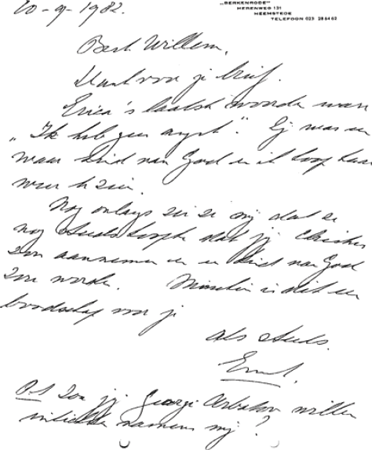 20-9-1982.
„BERKENRODE”
HERENWEG 131
HEEMSTEDE
TELEFOON 023 28 64 60
Best Willem,
Dank voor je brief.
Erica's laatste woorden waren
„Ik heb geen angst”. Zij was een
waar kind van God en ik hoop haar
weer te zien.
Nog onlangs zei ze mij dat ze
nog steeds hoopte dat jij Christus
zou aannemen en een kind van God
zou worden. Misschien is dit een
boodschap voor je
als steeds.
Ernst.
P.S. Zou jij Georgi Arbatov willen
inlichten namens mij?